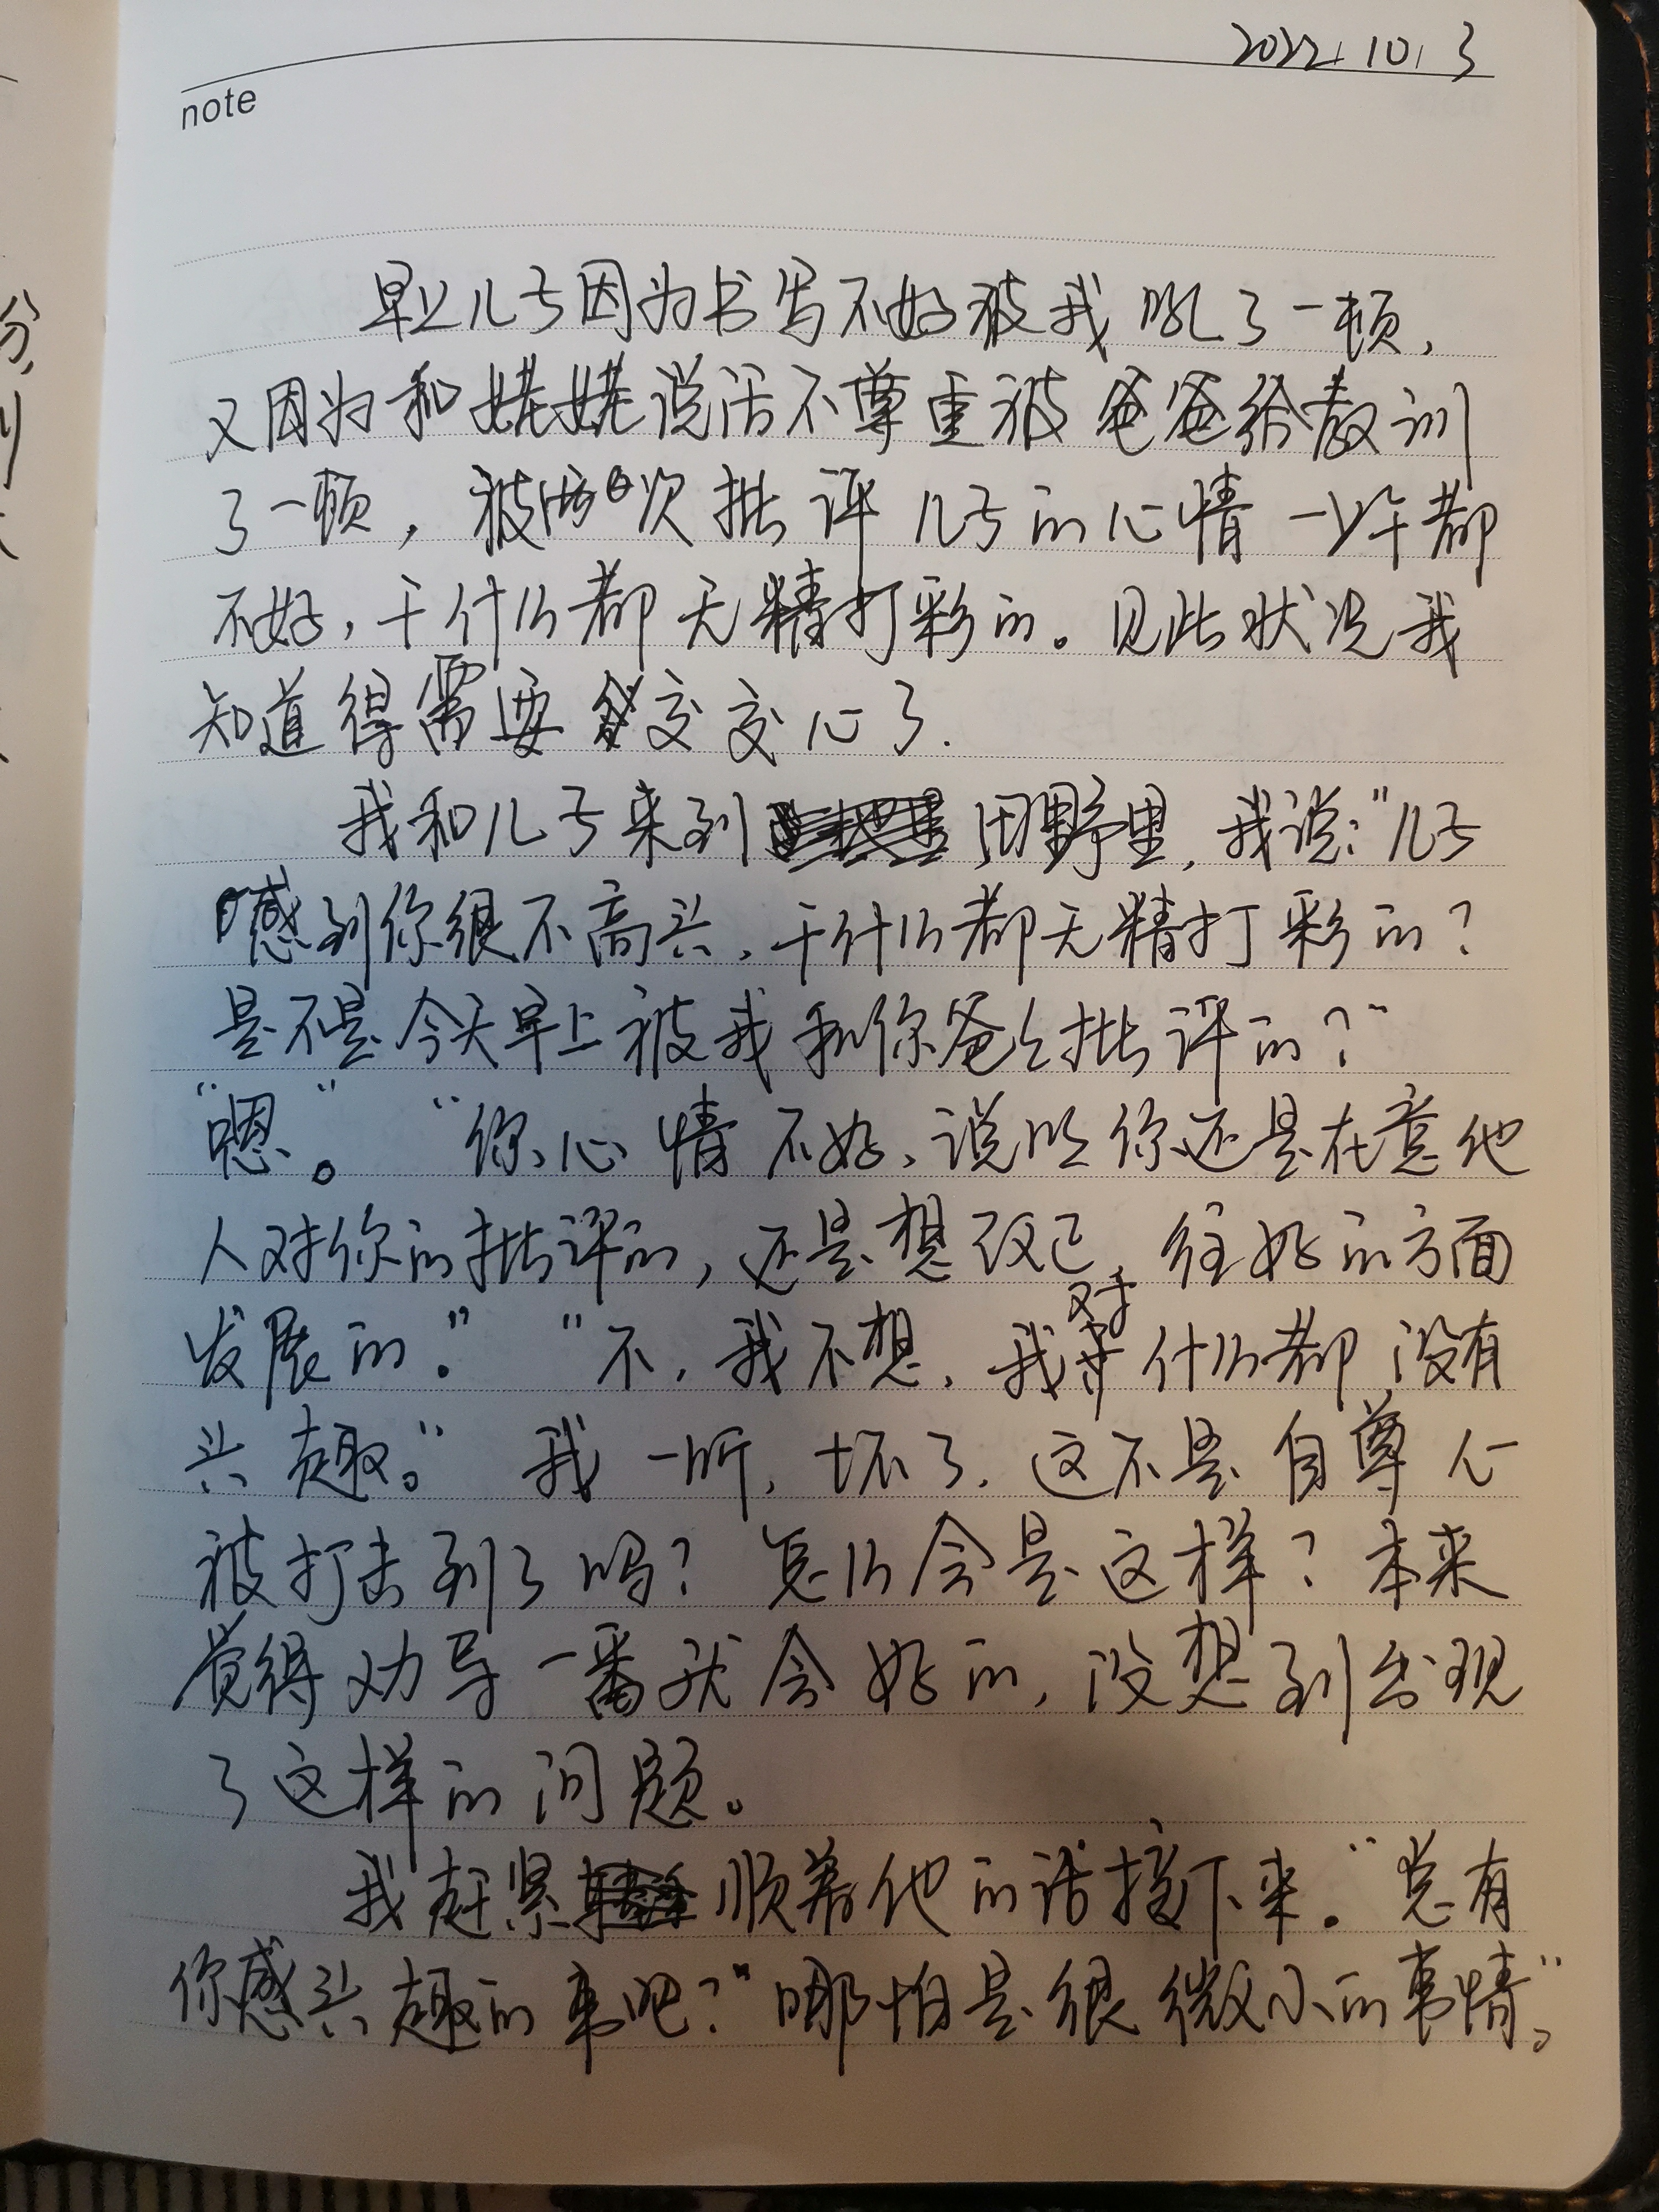 2022.10.3
note
早上儿子因为书写不好被我吼了一顿，
又因为和姥姥说话不尊重被爸爸给教训
了一顿，被两次批评儿子的心情一上午都
不好，干什么都无精打彩的。见此状况我
知道得需要交交心了.
我和儿子来到田野里，我说："儿子
感到你很不高兴，干什么都无精打彩的？
是不是今天早上被我和你爸爸批评的？"
"嗯"。"你心情不好，说明你还是在意他
人对你的批评的，还是想改正，往好的方面
发展的。" "不，我不想，我对什么都没有
兴趣。"我一听，坏了，这不是自尊心
被打击到了吗？怎么会是这样？本来
觉得劝导一番就会好的，没想到出现
了这样的问题。
我赶紧顺着他的话接下来。"总有
你感兴趣的事吧？"哪怕是很微小的事情。"
分，